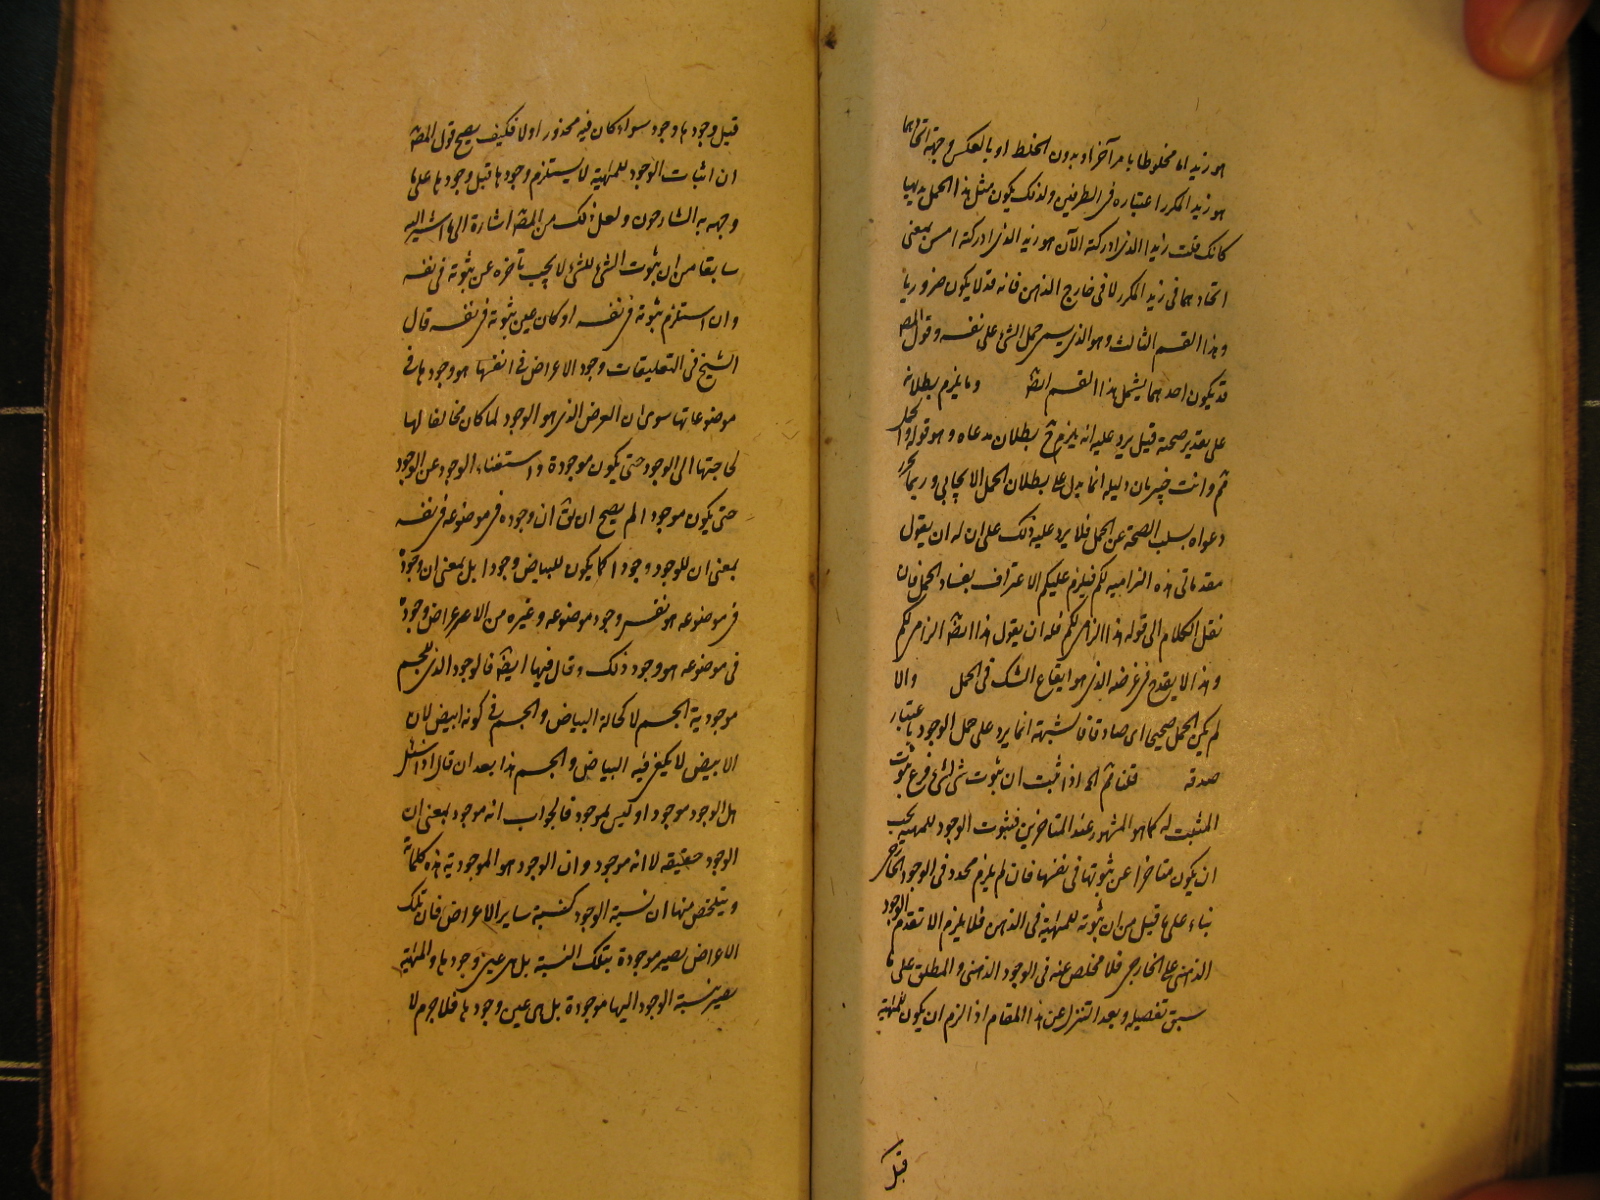 هو زيد اما مخلوطا بامر آخر او بدون الخلط او بالعكس وجهة اتحادهما
هو زيد المكرر اعتباره فى الطرفين ولذلك يكون مثل هذا الحمل بديهيا
كانك قلت زيد الذى ادركته الآن هو زيد الذى ادركته امس بمعنى
اتحادهما فى زيد المكرر لا فى خارج الذهن فانه قد لا يكون ضروريا
وهذا القسم الثالث وهو الذى يسمى حمل الشئ على نفسه وقول المصه
قد يكون احدهما يشمل هذا القسم ايضه وما يلزم بطلانه
على تقدير صحته قيل يرد عليه انه يلزم ح بطلان مدعاه وهو قوله والحمل
ثم وانت خبير بان دليله انما يدل على بطلان الحمل الايجابى وربما يحرر
دعواه بسلب الصحة عن الحمل فلا يرد عليه ذلك على ان له ان يقول
مقدماتى هذه الزامية لكم فيلزم عليكم الاعتراف بفساد الحمل فان
نقل الكلام الى قوله هذا الزامى لكم فله ان يقول هذا ايضه الزامى لكم
وهذا لا يقدح فى غرضه الذى هو ايقاع الشك فى الحمل والا
لم يكن الحمل صحيحا اى صادقا فالشبهة انما يرد على حمل الوجود باعتبار
صدقه قلنا ثم الخ اذا ثبت ان ثبوت شئ لشئ فرع ثبوت
المثبت له كما هو المشهور عند المتاخرين فثبوت الوجود للمهية يجب
ان يكون متاخرا عن ثبوتها فى نفسها فان لم يلزم محدد فى الوجود الخارجى
بناء على ما قيل من ان ثبوته للمهية فى الذهن فلا يلزم الا تقدم الوجود
الذهنى على الخارجى فلا مخلص عنه فى الوجود الذهنى والمطلق على ما
سبق تفصيله وبعد التنزل عن هذا المقام اذا لزم ان يكون للمهية
قبل
قبل وجودها وجود سواء كان فيه محذور اولا فكيف يصح قول المصه
ان اثبات الوجود للمهية لا يستلزم وجودها قبل وجودها على ما
وجهه به الشارحون ولعل ذلك من المصه اشارة الى ما اشير اليه
سابقا من ان ثبوت الشئ للشئ لا يجب تأخره عن ثبوته فى نفسه
وان استلزم ثبوته فى نفسه او كان عين ثبوته فى نفسه قال
الشيخ فى التعليقات وجود الاعراض فى انفسها هو وجودها فى
موضوعاتها سوى ان العرض الذى هو الوجود لما كان مخالفا لها
لحاجتها الى الوجود حتى يكون موجودة واستغناء الوجود عن الوجود
حتى يكون موجودا لم يصح ان يقه ان وجوده فى موضوعه فى نفسه
بمعنى ان للوجود وجودا كما يكون للبياض وجود ابل بمعنى ان وجوده
فى موضوعه هو نفس وجود موضوعه وغيره من الاعراض وجوده
فى موضوعه هو وجود ذلك وقال فيها ايضه فالوجود الذى للجسم
موجودية الجسم لا كحالة البياض والجسم فى كونه ابيض لان
الابيض لا يكفى فيه البياض والجسم هذا بعد ان قال اذا سئل
هل الوجود موجود او ليس بموجود فالجواب انه موجود بمعنى ان
الوجود حقيقته لا انه موجود وان الوجود هو الموجودية هذه كلماته
ويتلخص منها ان نسبة الوجود كنسبة ساير الاعراض فان تلك
الاعراض يصير موجودة بتلك النسبة بل هى عين وجودها والمهية
يصير بنسبة الوجود اليها موجودة بل هى عين وجودها فلا جرم لا